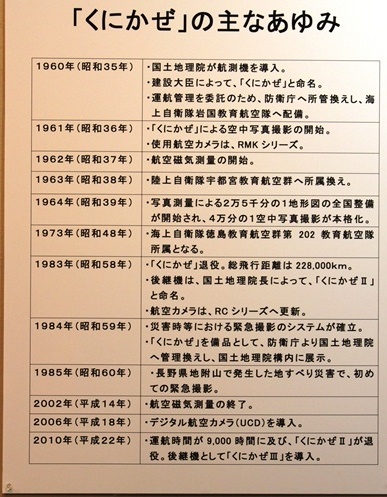 「くにかぜ」の主なあゆみ
1960年(昭和35年)
・国土地理院が航測機を導入。
・建設大臣によって、「くにかぜ」と命名。
・運航管理を委託のため、防衛庁へ所管換えし、海
上自衛隊岩国教育航空隊へ配備。
1961年(昭和36年)
・「くにかぜ」による空中写真撮影の開始。
・使用航空カメラは、RMKシリーズ。
1962年(昭和37年)
・航空磁気測量の開始。
1963年(昭和38年)
・陸上自衛隊宇都宮教育航空群へ所属換え。
1964年(昭和39年)
・写真測量による2万5千分の1地形図の全国整備
が開始され、4万分の1空中写真撮影が本格化。
1973年(昭和48年)
・海上自衛隊徳島教育航空群第 202 教育航空隊
所属となる。
1983年(昭和58年)
・「くにかぜ」退役。総飛行距離は 228,000km。
・後継機は、国土地理院長によって、「くにかぜⅡ」
と命名。
・航空カメラは、RCシリーズへ更新。
1984年(昭和59年)
・災害時等における緊急撮影のシステムが確立。
・「くにかぜ」を備品として、防衛庁より国土地理院
へ管理換えし、国土地理院構内に展示。
1985年(昭和60年)
・長野県地附山で発生した地すべり災害で、初め
ての緊急撮影。
2002年(平成14年)
・航空磁気測量の終了。
2006年(平成18年)
・デジタル航空カメラ(UCD)を導入。
2010年(平成22年)
・運航時間が 9,000 時間に及び、「くにかぜⅡ」が
退役。後継機として「くにかぜⅢ」を導入。